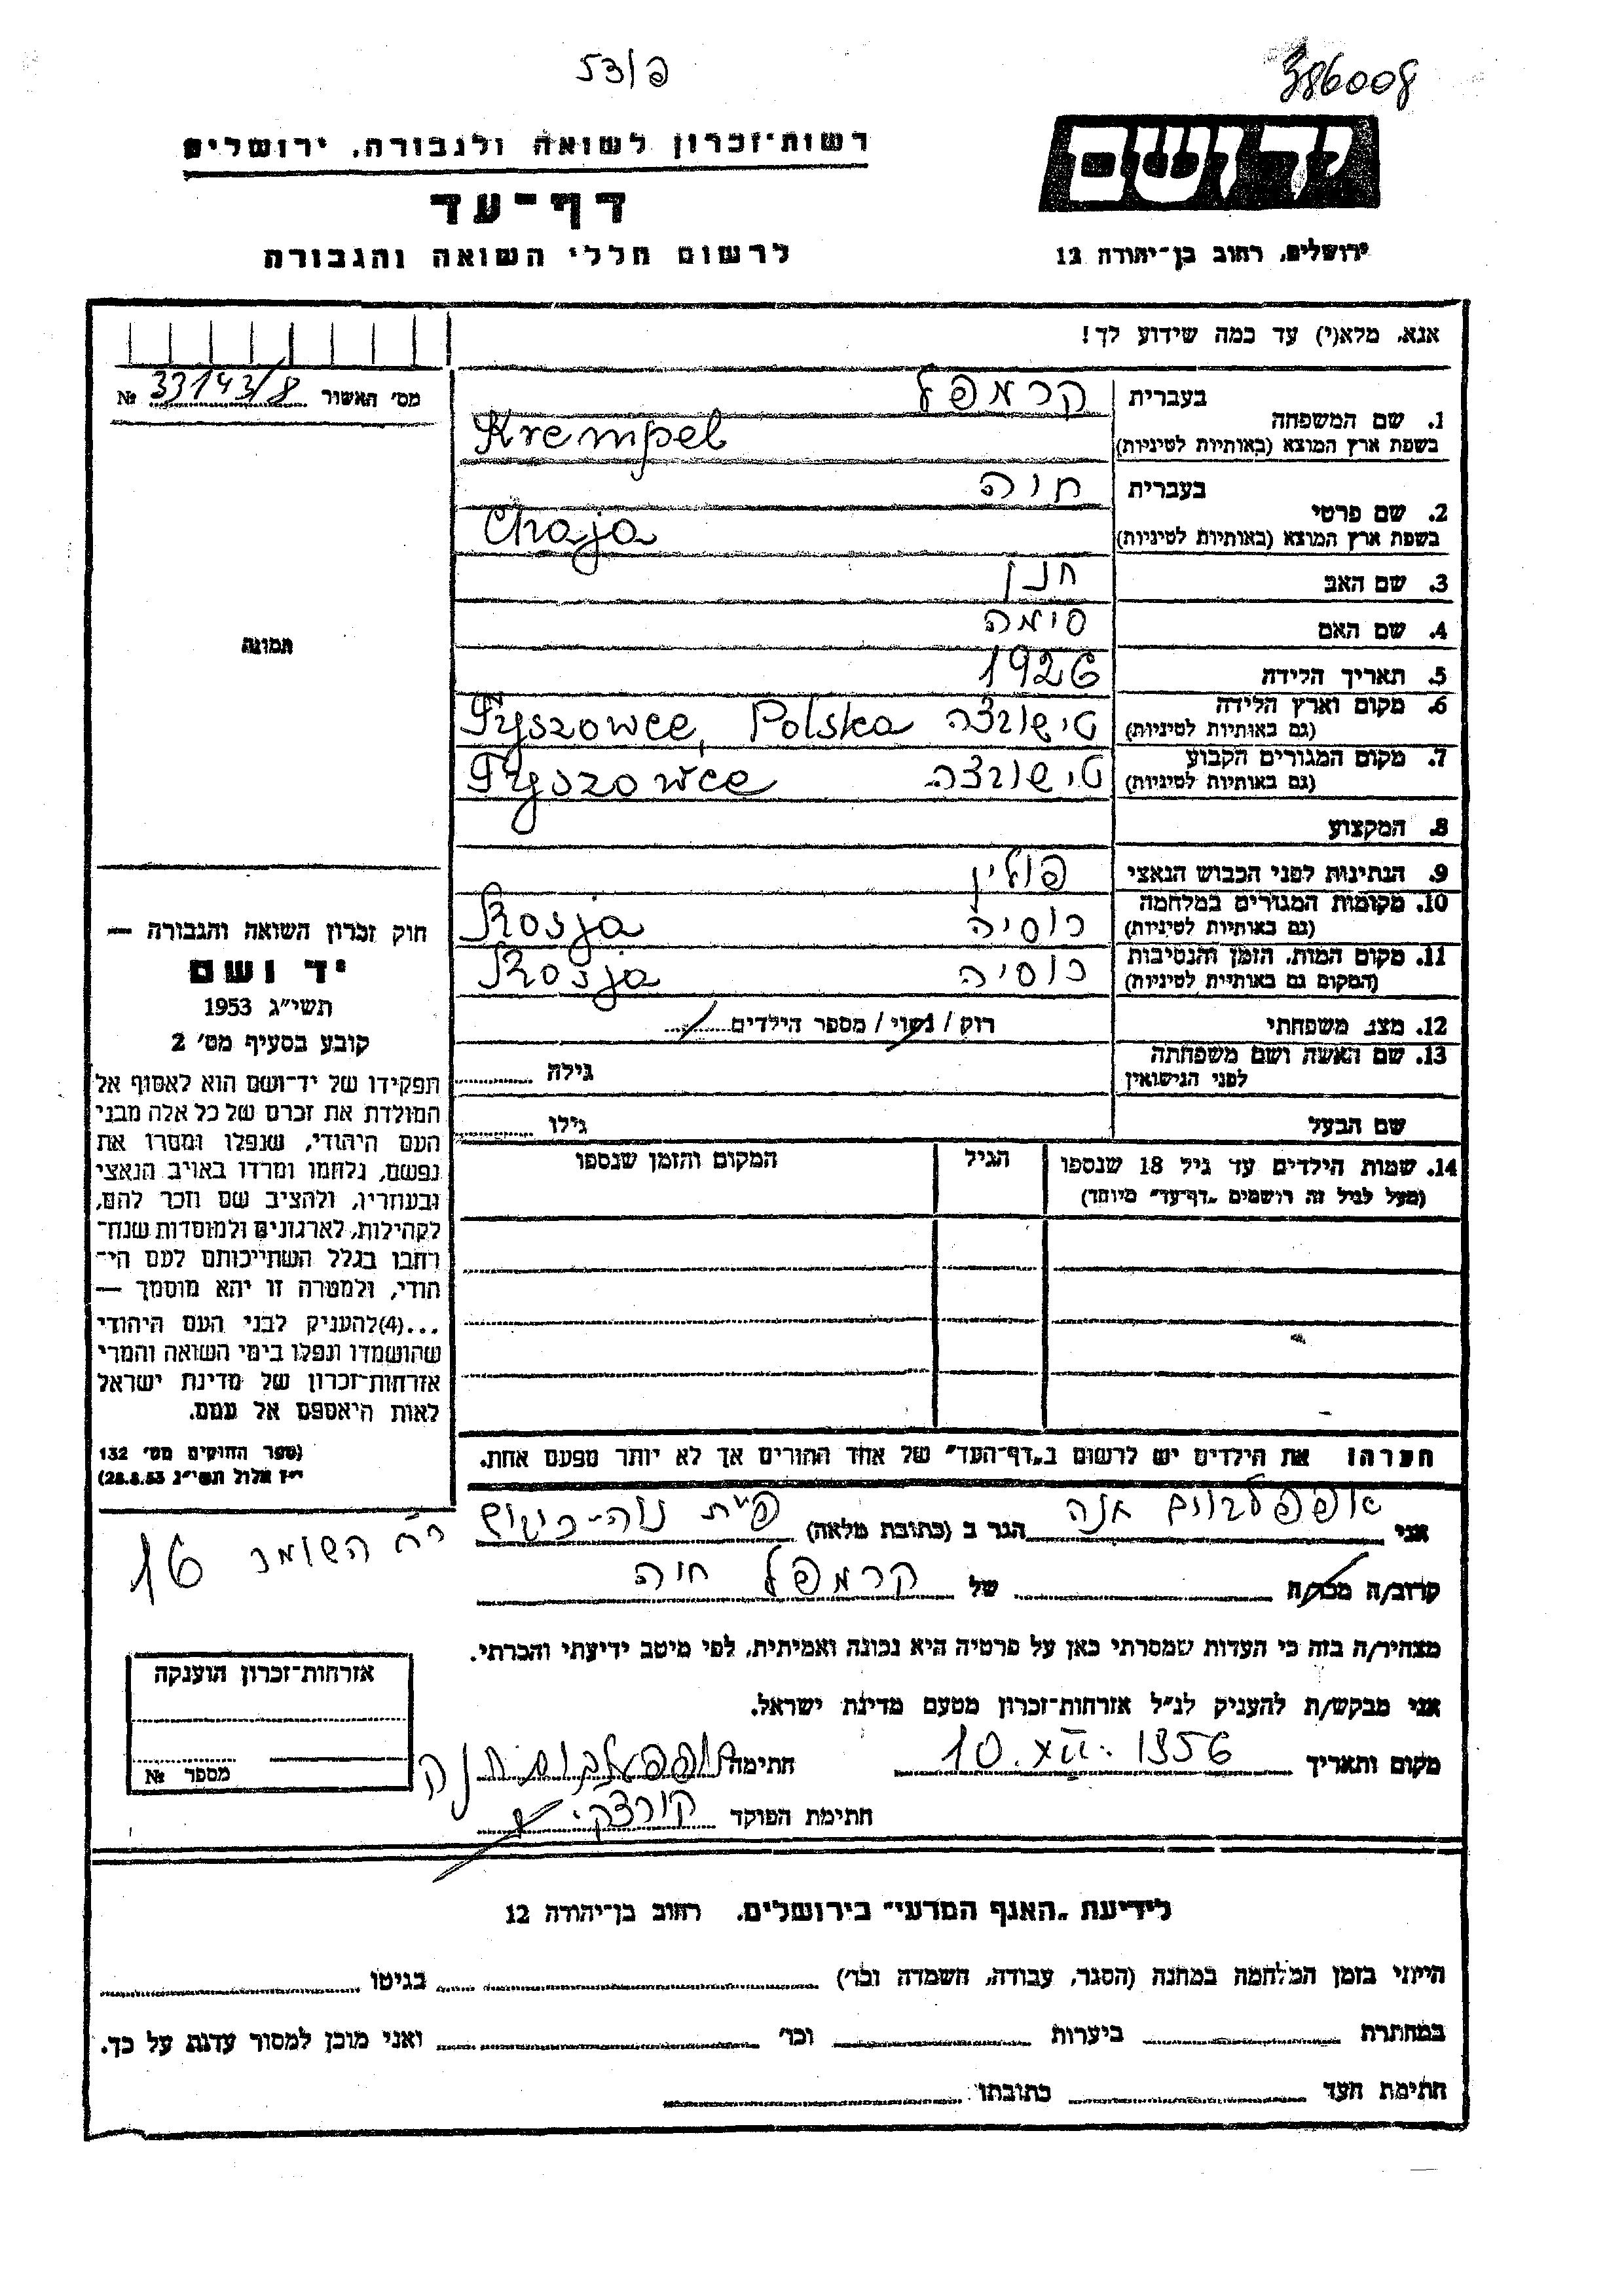 פ/53
386008
יד ושם
רשות־זכרון לשואה ולגבורה, ירושלים
דף־עד
לרשום חללי השואה והגבורה
ירושלים, רחוב בן־יהודה 12
אנא, מלא(י) עד כמה שידוע לך!
מס׳ האשור 33143/8 №
1. שם המשפחה בעברית קרמפל
בשפת ארץ המוצא (באותיות לטיניות) Krempel
2. שם פרטי בעברית חיה
בשפת ארץ המוצא (באותיות לטיניות) Chaja
3. שם האב חנן
4. שם האם סימה
5. תאריך הלידה 1926
6. מקום וארץ הלידה טישובצה Tyszowce, Polska
(גם באותיות לטיניות)
7. מקום המגורים הקבוע טישובצה Tyszowce
(גם באותיות לטיניות)
8. המקצוע
9. הנתינות לפני הכבוש הנאצי פולין
10. מקומות המגורים במלחמה רוסיה Rosja
(גם באותיות לטיניות)
11. מקום המות, הזמן והנסיבות רוסיה Rosja
(המקום גם באותיות לטיניות)
12. מצב משפחתי רוק / נשוי / מספר הילדים
13. שם האשה ושם משפחתה גילה
לפני הנישואין
שם הבעל גילו
14. שמות הילדים עד גיל 18 שנספו הגיל המקום והזמן שנספו
(מעל לגיל זה רושמים „דף־עד״ מיוחד)
תמונה
חוק זכרון השואה והגבורה —
יד ושם
תשי״ג 1953
קובע בסעיף מס׳ 2
תפקידו של יד־ושם הוא לאסוף אל
המולדת את זכרם של כל אלה מבני
העם היהודי, שנפלו ומסרו את
נפשם, נלחמו ומרדו באויב הנאצי
ובעוזריו, ולהציב שם וזכר להם,
לקהילות, לארגונים ולמוסדות שנח־
רבו בגלל השתייכותם לעם הי־
הודי, ולמטרה זו יהא מוסמך —
...(4) להעניק לבני העם היהודי
שהושמדו ונפלו בימי השואה והמרי
אזרחות־זכרון של מדינת ישראל
לאות היאספם אל עמם.
(ספר החוקים מס׳ 132
י״ז אלול תשי״ג 28.8.53)
הערה: את הילדים יש לרשום ב„דף־העד״ של אחד ההורים אך לא יותר מפעם אחת.
אני אפפלבוים אנה הגר ב (כתובת מלאה) פ״ת נוה- רח השומר 16
קרוב/ה מכר/ה של קרמפל חיה
מצהיר/ה בזה כי העדות שמסרתי כאן על פרטיה היא נכונה ואמיתית, לפי מיטב ידיעתי והכרתי.
אני מבקש/ת להעניק לנ״ל אזרחות־זכרון מטעם מדינת ישראל.
מקום ותאריך 10.XII.1956 חתימה
חתימת הפוקד
אזרחות־זכרון הוענקה
מספר №
לידיעת „האגף המדעי״ בירושלים, רחוב בן־יהודה 12
הייתי בזמן המלחמה במחנה (הסגר, עבודה, השמדה וכו׳) בגיטו
במחתרת ביערות וכו׳ ואני מוכן למסור עדות על כך.
חתימת העד כתובתו